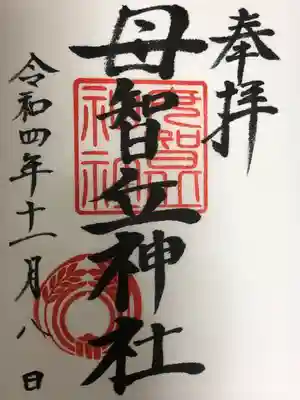 奉拝
母智丘神社
令和四年十一月八日